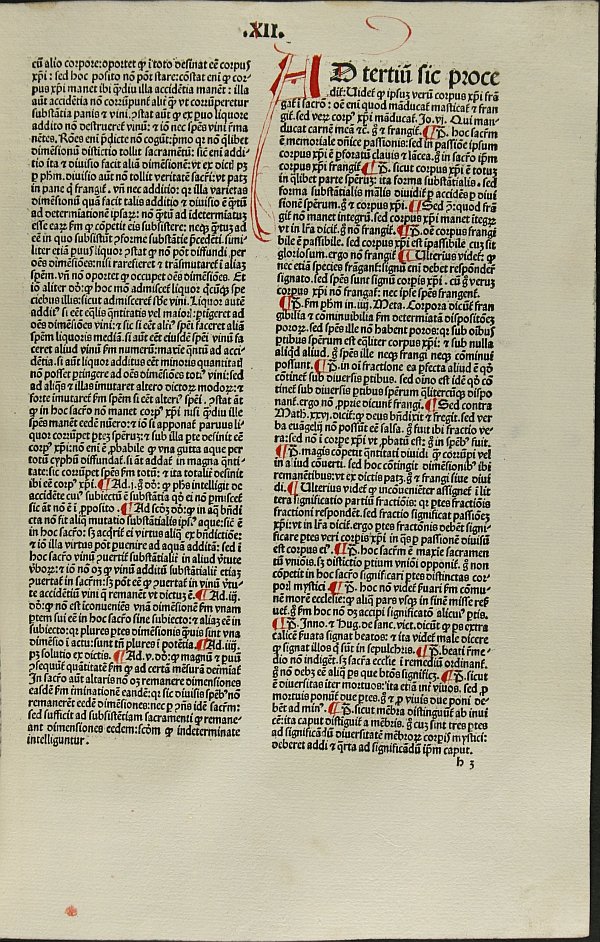 .XII.
cū alio corpore: oportet ꝙ ī toto desinat eē corpꝰ
xp̄i: sed hoc posito nō pōt stare: cōstat eni ꝙ cor-
pus xp̄i manet ibi q̄diu illa accidētia manēt: illa
aūt accidētia nō corrūpunt̄ alit̄ ꝙ vt corrūperetur
substātia panis ⁊ vini. ꝯstat aūt ꝙ ex puo liquore
addito nō destrueret̄ vinū: ⁊ iō nec sp̄es vini
nētes. Rōes eni p̄dicte nō cogūt: p̄mo qꝛ nō q̄libet
dimēsionū distīctio tollit sacramētū: sic eni addi-
tio ita ⁊ diuisio facit aliā dimēsionē: vt ex dict̄ pꝫ
p phm. diuisio aūt nō tollit veritatē sacr̄i: vt patꝫ
in pane q̄ frangit̄. vn̄ nec additio: qꝛ illa varietas
dimēsionū quā facit talis additio ⁊ diuisio ē q̄tū
ad determiationē ipsarꝫ: nō q̄tū ad idemtitatē
esse earꝫ fm ꝙ cōpetit eis subsistere: neqꝫ q̄tuꝫ ad
eē in quo subsistūt ꝓ forme substātie p̄cedēti. simi-
liter etiā puus liquor ꝯstat ꝙ nō pōt diffundi per
oēs dimēsiones: nisi rarefieret ⁊ trāsmutaret̄ ī aliaꝫ
sp̄em. vn̄ nō oportet ꝙ occupet oēs dimēsiōes. Et
iō aliter dō: ꝙ hoc mō admiscet̄ liquor q̄cūqꝫ spe
ciebus illis: sicut admisceret̄ sbe vini. Liquor autē
addit̄ si eēt eq̄lis q̄ntitatis vel maior: ptigeret ad
oēs dimēsiōes vini: ⁊ sic si eēt alteriꝰ sp̄ei faceret aliā
sp̄em liquoris mediā. si aūt eēt eiusdē sp̄ei vinū fa
ceret aliud vinū fm numerū: maxie q̄ntū ad acci-
dētia. si aūt liquor additus eēt minoris quantitat̄
nō posset ptīgere ad oēs dimēsiōes totiꝰ vini: sed
ad aliq̄s ⁊ illas imutaret altero dictorꝫ modorꝫ: ⁊
forte imutaret fm sp̄em si eēt alteriꝰ sp̄ei. ꝯstat āt
ꝙ in hoc sacr̄o nō manet corpꝰ xp̄i nisi q̄diu ille
sp̄es manēt eedē nūero: ⁊ iō si apponat̄ paruus li-
quor corrūpet ptes sp̄erūꝫ: ⁊ sub illa pte desinit eē
corpꝰ xp̄i: nō eni ē ꝓbabile ꝙ vna gutta aque per
totū cyphū diffundat̄. si āt addat̄ in magna q̄nti-
tate: sic corrūpet sp̄es fm totū: ⁊ ita totalit̄ desinit
ibi eē corpꝰ xp̄i. Ad .j. g̊ dō: ꝙ ph̄s intelligit de
accidēte cuiꝰ subiectū ē substātia qd̄ ei nō pmiscet̄
sic āt nō ē ī ꝓposito. Ad scd̄ꝫ dō: ꝙ in aq̄ bn̄di
cta nō fit aliq̄ mutatio substātialis ipsiꝰ aque: sic ē
in hoc sacr̄o: sꝫ acq̄rit̄ ei virtus aliq̄ ex bn̄dictiōe:
⁊ iō illa virtus pōt puenire ad aquā additā: sed ī
hoc sacr̄o vinū ꝯuertit̄ substātialit̄ in aliud v̄tute
v̄borꝫ: ⁊ iō nō oꝫ ꝙ vinū additū substātialit̄ etiaꝫ
ꝯuertat̄ in sacr̄m: sꝫ pōt eē ꝙ ꝯuertat̄ in vinū v̄tu-
te accidētiū vini q̄ remanēt vt dictuꝫ ē. Ad. iij.
dō: ꝙ nō est icōueniēs vnā dimēsionē fm vnam
ptem sui eē in hoc sacr̄o sine subiecto: ⁊ aliaꝫ eē in
subiecto: qꝛ plures ptes dimēsionis q̄uis sint vna
dimēsio ī actu: sunt tn̄ plures ī potētia. Ad. iiij.
pꝫ solutio ex dictis. Ad. v. dō: ꝙ magnū ⁊ puū
ꝯsequūt̄ quantitatē fm ꝙ ad certā mēsurā dermīat̄
In sacr̄o aūt altaris nō oꝫ remanere dimensiones
easdē fm īminationē eandē: qꝛ sic diuisis sp̄ebꝰ nō
remanerēt eedē dimēsiones: nec p ꝯn̄s idē sacr̄m:
sed sufficit ad subsistētiam sacramenti ꝙ remane-
ant dimensiones eedem: scd̄m ꝙ indeterminate
intelliguntur.
AD tertiū sic proce
dit̄: Videt̄ ꝙ ipsuꝫ verū corpus xp̄i frā
gat̄ ī sacr̄o: oē eni quod māducat̄ masticat̄ ⁊ fran
git̄. sed verꝫ corpꝰ xp̄i māducat̄. Jo. vj. Qui man-
ducat carnē meā ⁊c̄. g̊ ⁊ frangit̄. P. hoc sacr̄m
ē memoriale dn̄ice passionis: sed in passiōe ipsum
corpus xp̄i ē pforatū clauis ⁊ lācea. g̊ in sacr̄o ip̄m
corpus xp̄i frangit̄. P. sicut corpus xp̄i ē totuꝫ
in q̄libet parte sp̄eruꝫ: ita forma substātialis. sed
forma substātialis mālis diuidit̄ p accidēs p diui
sionē sp̄erum. g̊ ⁊ corpus xp̄i. Sed ꝯ: quod frā
git̄ nō manet integrū. sed corpus xp̄i manet itegrꝫ
vt in lr̄a dicit̄. g̊ nō frangit̄. P. oē corpus frangi
bile ē passibile. sed corpus xp̄i est īpassibile cuꝫ sit
gloriosum. ergo nō frangit̄. Ulterius videt̄ ꝙ
nec etiā species frāgant̄: signū eni debet respondet̄
signato. sed sp̄es sunt signū corpis xp̄i. cū g̊ verꝫ
corpus xp̄i nō frangat̄: nec ipse sp̄es frangent̄.
P. fm phm in. iiij. Metha. Corpora dicūt̄ fran
gibilia ⁊ cōminuibilia fm determiatā dispositōeꝫ
pororꝫ. sed sp̄es ille nō habent poros: qꝛ sub oībus
ptibus sp̄erum est eq̄liter corpus xp̄i: ⁊ sub nulla
aliq̄d aliud. g̊ sp̄es ille neqꝫ frangi neqꝫ cōminui
possunt. P. in oī fractione ea p̄fecta aliud ē qd̄
cōtinet̄ sub diuersis ptibus. sed oīno est idē qd̄ cō
tinet̄ sub diuersis ptibus sp̄erum q̄litercūqꝫ dispo
nant̄. ergo nō ꝓprie dicunt̄ frangi. Sed contra
Math. xxvi. dicit̄: ꝙ deus bn̄dixit ⁊ fregit. sed ver
ba euāgelij nō possūt eē falsa. g̊ fuit ibi fractio ve-
ra: sed nō ī corpe xp̄i vt ꝓbatū est: g̊ in sp̄ebꝰ fuit.
P. magis cōpetit q̄ntitati diuidi ꝙ corrūpi vel
in aliud cōuerti. sed hoc cōtingit dimēsionibꝰ ibi
remanētibus: vt ex dictis patꝫ. g̊ ⁊ frangi siue diui
di. Ulterius videt̄ ꝙ incōuenieter assignet̄ ī lit
tera significatio partiū fractiōis: qꝛ ptes fractiōis
fractioni respondēt. sed fractio significat passiōeꝫ
xp̄i: vt in lr̄a dicit̄. ergo ptes fractōnis debēt signi-
ficare ptes veri corporis xp̄i in q̄s p passionē diuisū
est corpus eiꝰ. P. hoc sacr̄m ē maxie sacramen
tū vniōis. sꝫ distinctio ptium vniōi opponit̄. g̊ non
cōpetit in hoc sacr̄o significari ptes distinctas cor-
pori mystici. P. hoc nō videt̄ suari fm cōmu-
nē morē ecclesie: ꝙ aliq̄ pars vsqꝫ in finē misse reser
uet̄. g̊ fm hoc nō oꝫ accipi significatō alicuiꝰ ptis.
P. Inno. ⁊ Hug. de sanc. vict. dicūt ꝙ ps extra
calicē suata signat beatos: ⁊ ita videt̄ male dicere
ꝙ signat illos q̄ sūt in sepulchris. P. beati r̄me-
dio nō indigēt. sꝫ sacr̄a ecclie ī remediū ordinant̄.
g̊ nō debꝫ eē aliq̄ ps que btōs significꝫ. P. sicut
ē diuersitas iter mortuos: ita etiā ini viuos. sed p
mortuis ponūt̄ due ptes. g̊ ⁊ p viuis due poni de-
bēt ad minꝰ. P. sicut mēbra distinguūt̄ ab inui
cē: ita caput distiguit̄ a mēbris. g̊ cuꝫ sint tres ptes
ad significādū diuersitatē mēbrorꝫ corpis mystici:
deberet addi ⁊ q̄rta ad significādū ip̄m caput.
h 3